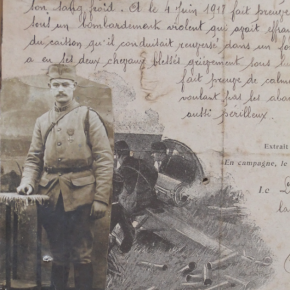 son sang froid. Et le 4 Juin 1917 fait preuve
sous un bombardement violent qui ayait effra
du caisson qu'il conduisait renversé dans un fo
a eu ses deux chevaux blessés grièvement sous l
fait preuve de calme
voulant pas les aban
aussi périlleux.
Extrait
En campagne, le
Le
la